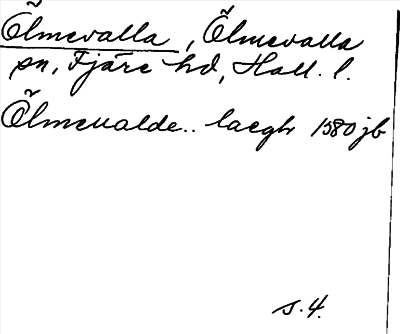 Õlmevalla, Õlmevalla
sn, Fjäre hd, Hall. l.
Õlmeualde.. laegh 1580 jb
s. 4.